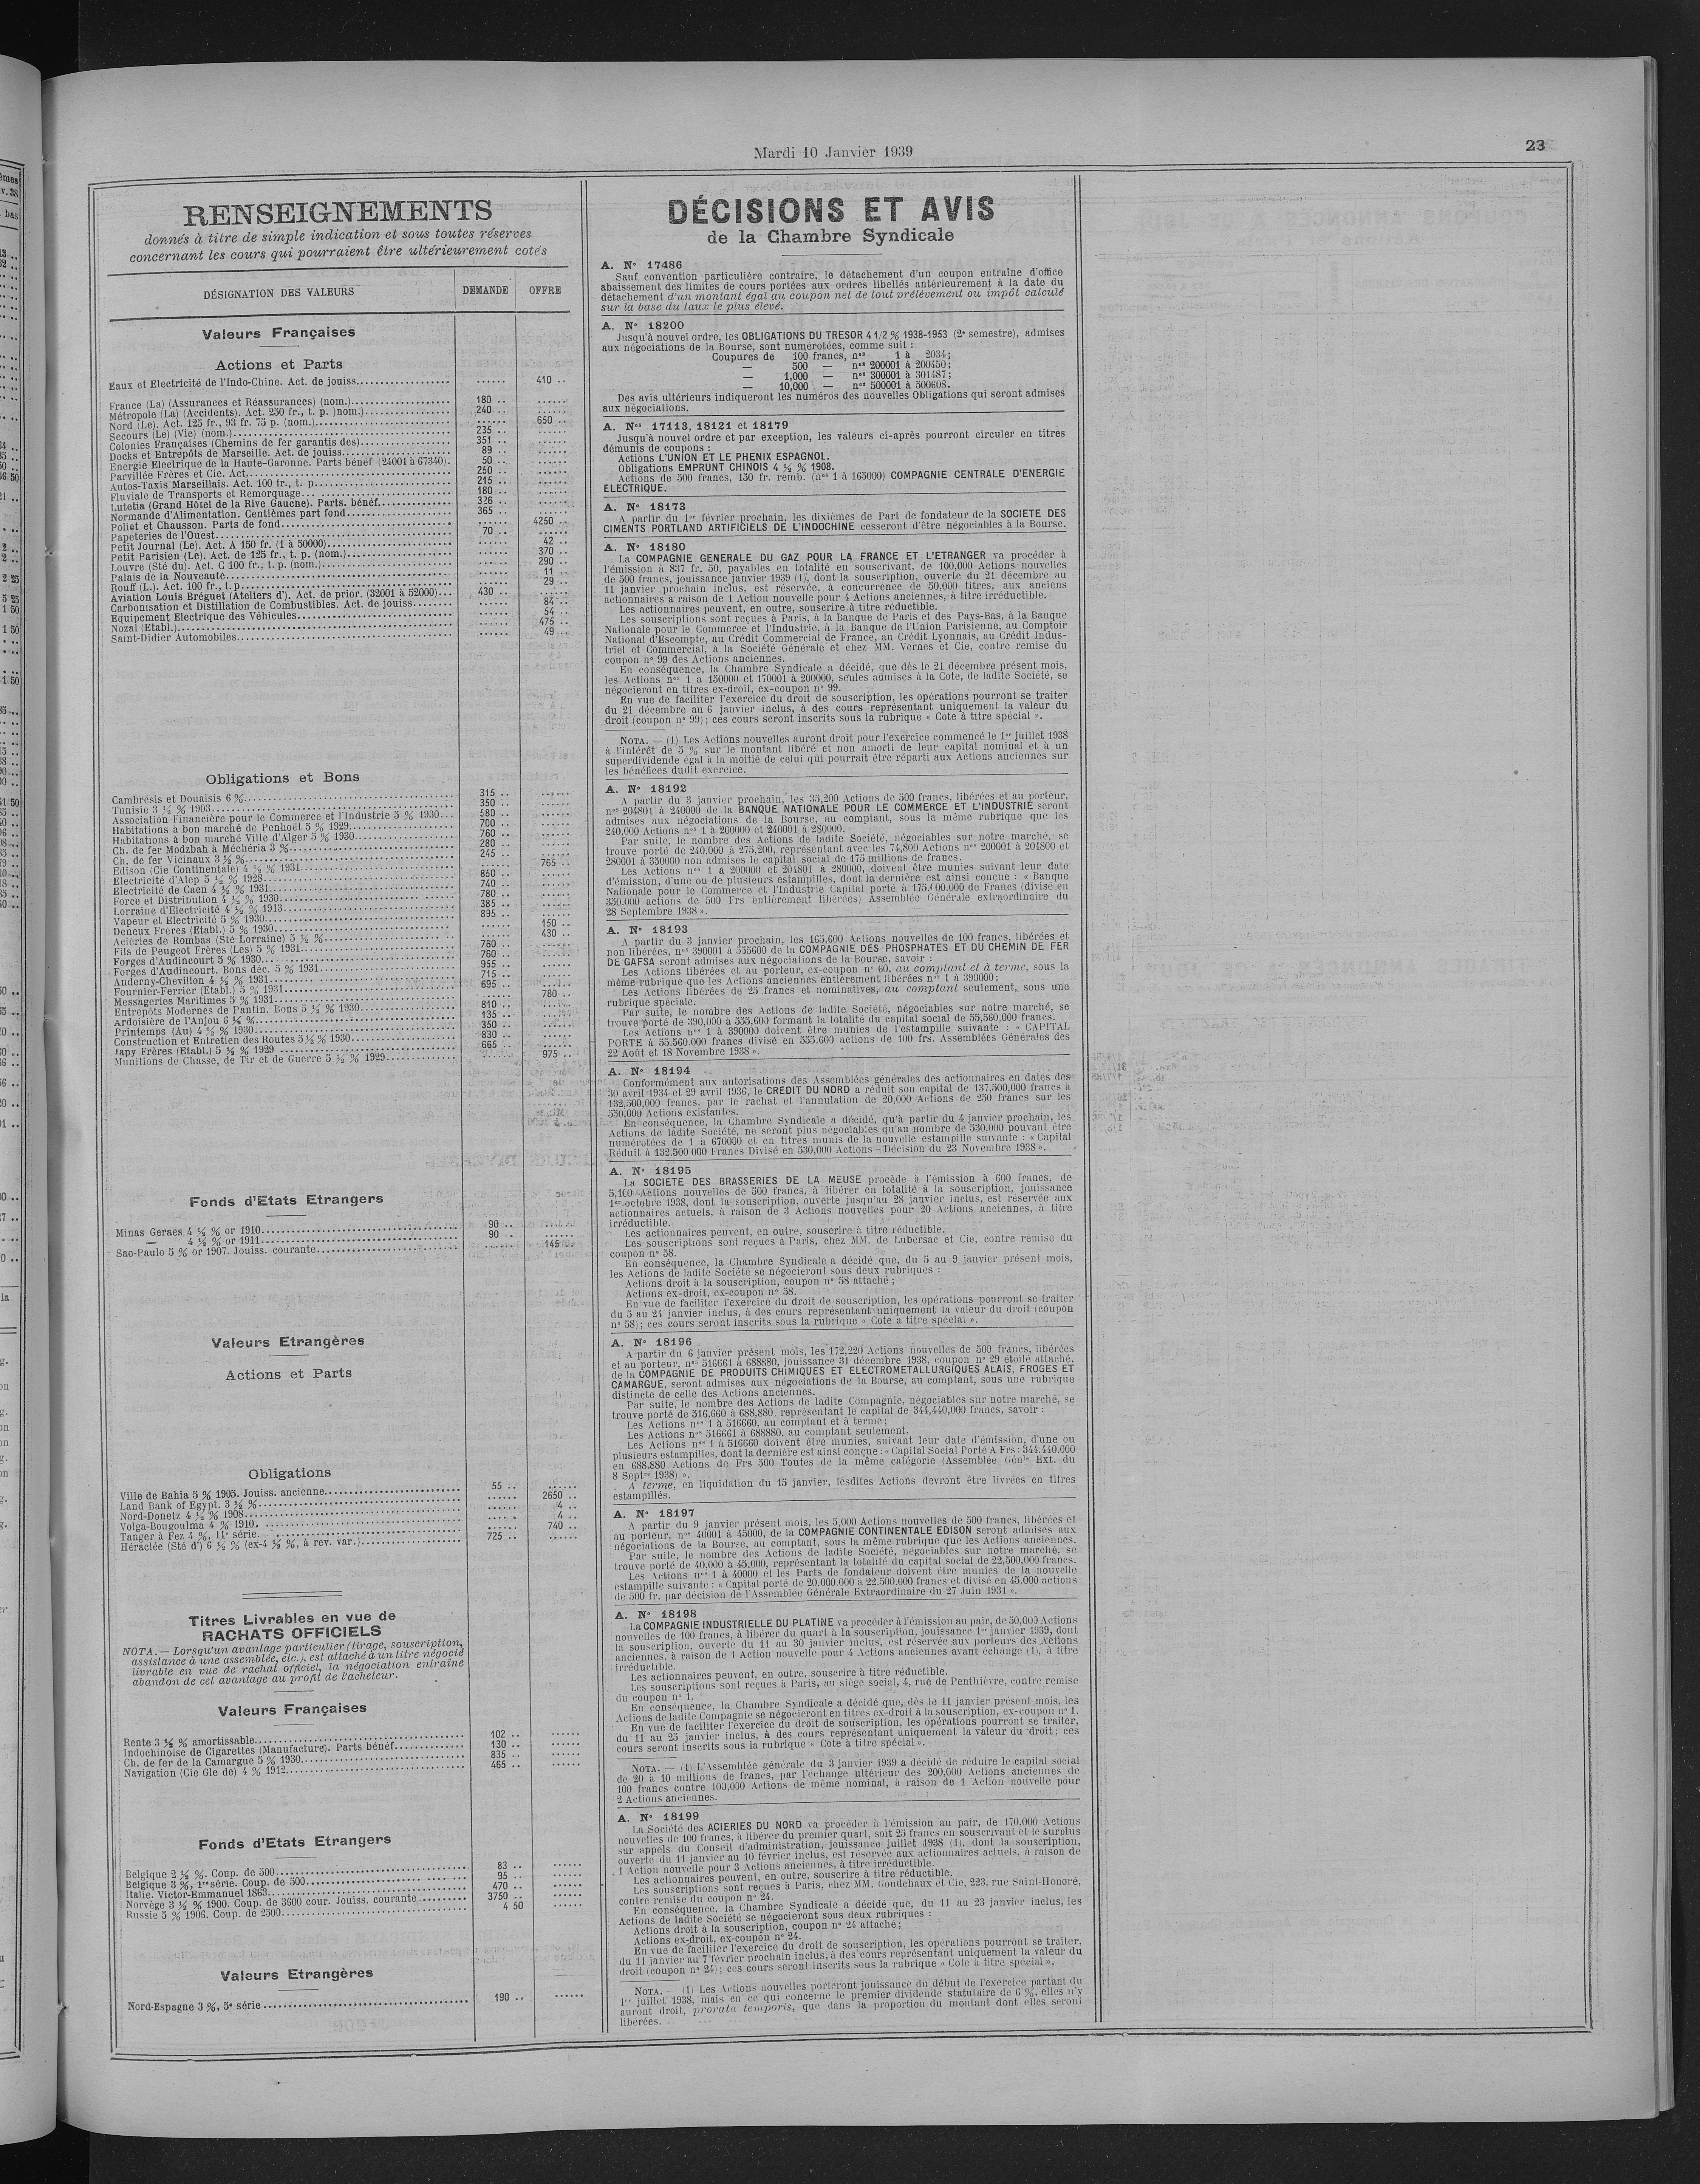 Mardi 10 Janvier 1939
23
RENSEIGNEMENTS
donnés à titre de simple indication et sous toutes réserves
concernant les cours qui pourraient être ultérieurement cotés
DÉSIGNATION DES VALEURS DEMANDE OFFRE
Valeurs Françaises
Actions et Parts
Eaux et Electricité de l'Indo-Chine. Act. de jouiss. ...... 410 ..
France (La) (Assurances et Réassurances) (nom.) 180 .. ......
Métropole (La) (Accidents). Act. 250 fr., t. p. )nom.) 240 .. ......
Nord (Le). Act. 125 fr., 93 fr. 75 p. (nom.) ...... 650 ..
Secours (Le) (Vie) (nom.) 235 .. ......
Colonies Françaises (Chemins de fer garantis des) 351 .. ......
Docks et Entrepôts de Marseille. Act. de jouiss. 89 .. ......
Energie Electrique de la Haute-Garonne. Parts bénéf (24001 à 67340). 50 .. ......
Parvillée Frères et Cie. Act. 250 .. ......
Autos-Taxis Marseillais. Act. 100 fr., t. p. 215 .. ......
Fluviale de Transports et Remorquage 180 .. ......
Lutetia (Grand Hôtel de la Rive Gauche). Parts. bénéf. 326 .. ......
Normande d'Alimentation. Centièmes part fond. 365 .. ......
Poliet et Chausson. Parts de fond. ...... 4250 ..
Papeteries de l'Ouest 70 .. ......
Petit Journal (Le). Act. A 150 fr. (1 à 50000) ...... 42 ..
Petit Parisien (Le). Act. de 125 fr., t. p. (nom.) ...... 370 ..
Louvre (Sté du). Act. C 100 fr., t. p. (nom.) ...... 290 ..
Palais de la Nouveauté ...... 11 ..
Rouff (L.). Act. 100 fr., t. p. ...... 29 ..
Aviation Louis Bréguet (Ateliers d'). Act. de prior. (32001 à 52000) 430 .. ......
Carbonisation et Distillation de Combustibles. Act. de jouiss. ...... 84 ..
Equipement Electrique des Véhicules ...... 54 ..
Nozal (Etabl.) ...... 475 ..
Saint-Didier Automobiles ...... 49 ..
Obligations et Bons
Cambrésis et Douaisis 6 % 315 .. ......
Tunisie 3 ½ % 1903 350 .. ......
Association Financière pour le Commerce et l'Industrie 5 % 1930 580 .. ......
Habitations à bon marché de Penhoët 5 % 1929 700 .. ......
Habitations à bon marché Ville d'Alger 5 % 1930 760 .. ......
Ch. de fer Modzbah à Méchéria 3 % 280 .. ......
Ch. de fer Vicinaux 3 ½ % 245 .. ......
Edison (Cie Continentale) 4 ½ % 1931 ...... 765 ..
Electricité d'Alep 5 ½ % 1928 850 .. ......
Electricité de Caen 4 ½ % 1931 740 .. ......
Force et Distribution 4 ½ % 1930 780 .. ......
Lorraine d'Electricité 4 ½ % 1913 385 .. ......
Vapeur et Electricité 5 % 1930 895 .. ......
Deneux Frères (Etabl.) 5 % 1930 ...... 150 ..
Acieries de Rombas (Sté Lorraine) 5 ½ % ...... 430 ..
Fils de Peugeot Frères (Les) 5 % 1931 760 .. ......
Forges d'Audincourt 5 % 1930 760 .. ......
Forges d'Audincourt. Bons déc. 5 % 1931 955 .. ......
Anderny-Chevillon 4 ½ % 1931 715 .. ......
Fournier-Ferrier (Etabl.) 5 % 1931 695 .. ......
Messageries Maritimes 5 % 1931 ...... 780 ..
Entrepôts Modernes de Pantin. Bons 5 ½ % 1930 810 .. ......
Ardoisière de l'Anjou 6 ½ % 135 .. ......
Printemps (Au) 4 ½ % 1930 350 .. ......
Construction et Entretien des Routes 5 ½ % 1930 830 .. ......
Japy Frères (Etabl.) 5 ½ % 1929 665 .. ......
Munitions de Chasse, de Tir et de Guerre 5 ½ % 1929 ...... 975 ..
Fonds d'Etats Etrangers
Minas Geraes 4 ½ % or 1910 90 .. ......
— 4 ½ % or 1911 90 .. ......
Sao-Paulo 5 % or 1907. Jouiss. courante ...... 145 ..
Valeurs Etrangères
Actions et Parts
Obligations
Ville de Bahia 5 % 1905. Jouiss. ancienne 55 .. ......
Land Bank of Egypt. 3 ½ % ...... 2650 ..
Nord-Donetz 4 ½ % 1908 ...... 4 ..
Volga-Bougoulma 4 % 1910 ...... 4 ..
Tanger à Fez 4 %, 11e série ...... 740 ..
Héraclée (Sté d') 6 ½ % (ex-4 ½ %, à rev. var.) 725 .. ......
Titres Livrables en vue de
RACHATS OFFICIELS
NOTA. — Lorsqu'un avantage particulier (tirage, souscription,
assistance à une assemblée, etc.), est attaché à un titre négocié
livrable en vue de rachat officiel, la négociation entraîne
abandon de cet avantage au profit de l'acheteur.
Valeurs Françaises
Rente 3 ½ % amortissable 102 .. ......
Indochinoise de Cigarettes (Manufacture). Parts bénéf. 130 .. ......
Ch. de fer de la Camargue 5 % 1930 835 .. ......
Navigation (Cie Gle de) 4 % 1912 465 .. ......
Fonds d'Etats Etrangers
Belgique 2 ½ %. Coup. de 500 83 .. ......
Belgique 3 %, 1re série. Coup. de 500 95 .. ......
Italie. Victor-Emmanuel 1863 470 .. ......
Norvège 3 ½ % 1900. Coup. de 3600 cour. Jouiss. courante 3750 .. ......
Russie 5 % 1906. Coup. de 2500 4 50 ......
Valeurs Etrangères
Nord-Espagne 3 %, 5e série 190 .. ......
DÉCISIONS ET AVIS
de la Chambre Syndicale
A. N° 17486
Sauf convention particulière contraire, le détachement d'un coupon entraîne d'office
abaissement des limites de cours portées aux ordres libellés antérieurement à la date du
détachement d'un montant égal au coupon net de tout prélèvement ou impôt calculé
sur la base du taux le plus élevé.
A. N° 18200
Jusqu'à nouvel ordre, les OBLIGATIONS DU TRESOR 4 1/2 % 1938-1953 (2e semestre), admises
aux négociations de la Bourse, sont numérotées, comme suit :
Coupures de 100 francs, nos 1 à 2034;
— 500 — nos 200001 à 200450;
— 1,000 — nos 300001 à 301487;
— 10,000 — nos 500001 à 500608.
Des avis ultérieurs indiqueront les numéros des nouvelles Obligations qui seront admises
aux négociations.
A. Nos 17113, 18121 et 18179
Jusqu'à nouvel ordre et par exception, les valeurs ci-après pourront circuler en titres
démunis de coupons :
Actions L'UNION ET LE PHENIX ESPAGNOL.
Obligations EMPRUNT CHINOIS 4 ½ % 1908.
Actions de 500 francs, 450 fr. remb. (nos 1 à 165000) COMPAGNIE CENTRALE D'ENERGIE
ELECTRIQUE.
A. N° 18173
A partir du 1er février prochain, les dixièmes de Part de fondateur de la SOCIETE DES
CIMENTS PORTLAND ARTIFICIELS DE L'INDOCHINE cesseront d'être négociables à la Bourse.
A. N° 18180
La COMPAGNIE GENERALE DU GAZ POUR LA FRANCE ET L'ETRANGER va procéder à
l'émission à 837 fr. 50, payables en totalité en souscrivant, de 100,000 Actions nouvelles
de 500 francs, jouissance janvier 1939 (1), dont la souscription, ouverte du 21 décembre au
11 janvier prochain inclus, est réservée, à concurrence de 50,000 titres, aux anciens
actionnaires à raison de 1 Action nouvelle pour 4 Actions anciennes, à titre irréductible.
Les actionnaires peuvent, en outre, souscrire à titre réductible.
Les souscriptions sont reçues à Paris, à la Banque de Paris et des Pays-Bas, à la Banque
Nationale pour le Commerce et l'Industrie, à la Banque de l'Union Parisienne, au Comptoir
National d'Escompte, au Crédit Commercial de France, au Crédit Lyonnais, au Crédit Indus-
triel et Commercial, à la Société Générale et chez MM. Vernes et Cie, contre remise du
coupon n° 99 des Actions anciennes.
En conséquence, la Chambre Syndicale a décidé, que dès le 21 décembre présent mois,
les Actions nos 1 à 150000 et 170001 à 200000, seules admises à la Cote, de ladite Société, se
négocieront en titres ex-droit, ex-coupon n° 99.
En vue de faciliter l'exercice du droit de souscription, les opérations pourront se traiter
du 21 décembre au 6 janvier inclus, à des cours représentant uniquement la valeur du
droit (coupon n° 99); ces cours seront inscrits sous la rubrique « Cote à titre spécial ».
NOTA. — (1) Les Actions nouvelles auront droit pour l'exercice commencé le 1er juillet 1938
à l'intérêt de 5 % sur le montant libéré et non amorti de leur capital nominal et à un
superdividende égal à la moitié de celui qui pourrait être réparti aux Actions anciennes sur
les bénéfices dudit exercice.
A. N° 18192
A partir du 3 janvier prochain, les 35,200 Actions de 500 francs, libérées et au porteur,
nos 204801 à 240000 de la BANQUE NATIONALE POUR LE COMMERCE ET L'INDUSTRIE seront
admises aux négociations de la Bourse, au comptant, sous la même rubrique que les
240,000 Actions nos 1 à 200000 et 240001 à 280000.
Par suite, le nombre des Actions de ladite Société, négociables sur notre marché, se
trouve porté de 240,000 à 275,200, représentant avec les 74,800 Actions nos 200001 à 204800 et
280001 à 350000 non admises le capital social de 175 millions de francs.
Les Actions nos 1 à 200000 et 204801 à 280000, doivent être munies suivant leur date
d'émission, d'une ou de plusieurs estampilles, dont la dernière est ainsi conçue : « Banque
Nationale pour le Commerce et l'Industrie Capital porté à 175.000.000 de Francs (divisé en
350.000 actions de 500 Frs entièrement libérées) Assemblée Générale extraordinaire du
28 Septembre 1938 ».
A. N° 18193
A partir du 3 janvier prochain, les 165,600 Actions nouvelles de 100 francs, libérées et
non libérées, nos 390001 à 555600 de la COMPAGNIE DES PHOSPHATES ET DU CHEMIN DE FER
DE GAFSA seront admises aux négociations de la Bourse, savoir :
Les Actions libérées et au porteur, ex-coupon n° 60, au comptant et à terme, sous la
même rubrique que les Actions anciennes entièrement libérées nos 1 à 390000;
Les Actions libérées de 25 francs et nominatives, au comptant seulement, sous une
rubrique spéciale.
Par suite, le nombre des Actions de ladite Société, négociables sur notre marché, se
trouve porté de 390,000 à 555,600 formant la totalité du capital social de 55,560,000 francs.
Les Actions nos 1 à 390000 doivent être munies de l'estampille suivante : « CAPITAL
PORTE à 55.560.000 francs divisé en 555.600 actions de 100 frs. Assemblées Générales des
22 Août et 18 Novembre 1938 ».
A. N° 18194
Conformément aux autorisations des Assemblées générales des actionnaires en dates des
30 avril 1934 et 29 avril 1936, le CREDIT DU NORD a réduit son capital de 137,500,000 francs à
132,500,000 francs, par le rachat et l'annulation de 20,000 Actions de 250 francs sur les
550,000 Actions existantes.
En conséquence, la Chambre Syndicale a décidé, qu'à partir du 4 janvier prochain, les
Actions de ladite Société, ne seront plus négociables qu'au nombre de 530.000 pouvant être
numérotées de 1 à 670000 et en titres munis de la nouvelle estampille suivante : « Capital
Réduit à 132.500 000 Francs Divisé en 530,000 Actions – Décision du 23 Novembre 1938 ».
A. N° 18195
La SOCIETE DES BRASSERIES DE LA MEUSE procède à l'émission à 600 francs, de
5,100 Actions nouvelles de 500 francs, à libérer en totalité à la souscription, jouissance
1er octobre 1938, dont la souscription, ouverte jusqu'au 28 janvier inclus, est réservée aux
actionnaires actuels, à raison de 3 Actions nouvelles pour 20 Actions anciennes, à titre
irréductible.
Les actionnaires peuvent, en outre, souscrire à titre réductible.
Les souscriptions sont reçues à Paris, chez MM. de Lubersac et Cie, contre remise du
coupon n° 58.
En conséquence, la Chambre Syndicale a décidé que, du 5 au 9 janvier présent mois,
les Actions de ladite Société se négocieront sous deux rubriques :
Actions droit à la souscription, coupon n° 58 attaché ;
Actions ex-droit, ex-coupon n° 58.
En vue de faciliter l'exercice du droit de souscription, les opérations pourront se traiter
du 5 au 24 janvier inclus, à des cours représentant uniquement la valeur du droit (coupon
n° 58); ces cours seront inscrits sous la rubrique « Cote à titre spécial ».
A. N° 18196
A partir du 6 janvier présent mois, les 172,220 Actions nouvelles de 500 francs, libérées
et au porteur, nos 516661 à 688880, jouissance 31 décembre 1938, coupon n° 29 étoilé attaché,
de la COMPAGNIE DE PRODUITS CHIMIQUES ET ELECTROMETALLURGIQUES ALAIS, FROGES ET
CAMARGUE, seront admises aux négociations de la Bourse, au comptant, sous une rubrique
distincte de celle des Actions anciennes.
Par suite, le nombre des Actions de ladite Compagnie, négociables sur notre marché, se
trouve porté de 516,660 à 688,880, représentant le capital de 344,440,000 francs, savoir :
Les Actions nos 1 à 516660, au comptant et à terme;
Les Actions nos 516661 à 688880, au comptant seulement.
Les Actions nos 1 à 516660 doivent être munies, suivant leur date d'émission, d'une ou
plusieurs estampilles, dont la dernière est ainsi conçue : « Capital Social Porté A Frs : 344.440.000
en 688.880 Actions de Frs 500 Toutes de la même catégorie (Assemblée Génle Ext. du
8 Septre 1938) ».
A terme, en liquidation du 15 janvier, lesdites Actions devront être livrées en titres
estampillés.
A. N° 18197
A partir du 9 janvier présent mois, les 5,000 Actions nouvelles de 500 francs, libérées et
au porteur, nos 40001 à 45000, de la COMPAGNIE CONTINENTALE EDISON seront admises aux
négociations de la Bourse, au comptant, sous la même rubrique que les Actions anciennes.
Par suite, le nombre des Actions de ladite Société, négociables sur notre marché, se
trouve porté de 40,000 à 45,000, représentant la totalité du capital social de 22,500,000 francs.
Les Actions nos 1 à 40000 et les Parts de fondateur doivent être munies de la nouvelle
estampille suivante : « Capital porté de 20.000.000 à 22.500.000 francs et divisé en 45.000 actions
de 500 fr. par décision de l'Assemblée Générale Extraordinaire du 27 Juin 1931 ».
A. N° 18198
La COMPAGNIE INDUSTRIELLE DU PLATINE va procéder à l'émission au pair, de 50,000 Actions
nouvelles de 100 francs, à libérer du quart à la souscription, jouissance 1er janvier 1939, dont
la souscription, ouverte du 11 au 30 janvier inclus, est réservée aux porteurs des Actions
anciennes, à raison de 1 Action nouvelle pour 4 Actions anciennes avant échange (1), à titre
irréductible.
Les actionnaires peuvent, en outre, souscrire à titre réductible.
Les souscriptions sont reçues à Paris, au siège social, 4, rue de Penthièvre, contre remise
du coupon n° 1.
En conséquence, la Chambre Syndicale a décidé que, dès le 11 janvier présent mois, les
Actions de ladite Compagnie se négocieront en titres ex-droit à la souscription, ex-coupon n° 1.
En vue de faciliter l'exercice du droit de souscription, les opérations pourront se traiter,
du 11 au 25 janvier inclus, à des cours représentant uniquement la valeur du droit; ces
cours seront inscrits sous la rubrique « Cote à titre spécial ».
NOTA. — (1) L'Assemblée générale du 3 janvier 1939 a décidé de réduire le capital social
de 20 à 10 millions de francs, par l'échange ultérieur des 200,000 Actions anciennes de
100 francs contre 100,000 Actions de même nominal, à raison de 1 Action nouvelle pour
2 Actions anciennes.
A. N° 18199
La Société des ACIERIES DU NORD va procéder à l'émission au pair, de 170,000 Actions
nouvelles de 100 francs, à libérer du premier quart, soit 25 francs en souscrivant et le surplus
sur appels du Conseil d'administration, jouissance juillet 1938 (1), dont la souscription,
ouverte du 11 janvier au 10 février inclus, est réservée aux actionnaires actuels, à raison de
1 Action nouvelle pour 3 Actions anciennes, à titre irréductible.
Les actionnaires peuvent, en outre, souscrire à titre réductible.
Les souscriptions sont reçues à Paris, chez MM. Goudchaux et Cie, 223, rue Saint-Honoré,
contre remise du coupon n° 24.
En conséquence, la Chambre Syndicale a décidé que, du 11 au 23 janvier inclus, les
Actions de ladite Société se négocieront sous deux rubriques :
Actions droit à la souscription, coupon n° 24 attaché;
Actions ex-droit, ex-coupon n° 24.
En vue de faciliter l'exercice du droit de souscription, les opérations pourront se traiter,
du 11 janvier au 7 février prochain inclus, à des cours représentant uniquement la valeur du
droit (coupon n° 24); ces cours seront inscrits sous la rubrique « Cote à titre spécial ».
NOTA. — (1) Les Actions nouvelles porteront jouissance du début de l'exercice partant du
1er juillet 1938, mais en ce qui concerne le premier dividende statutaire de 6 %, elles n'y
auront droit, prorata temporis, que dans la proportion du montant dont elles seront
libérées.